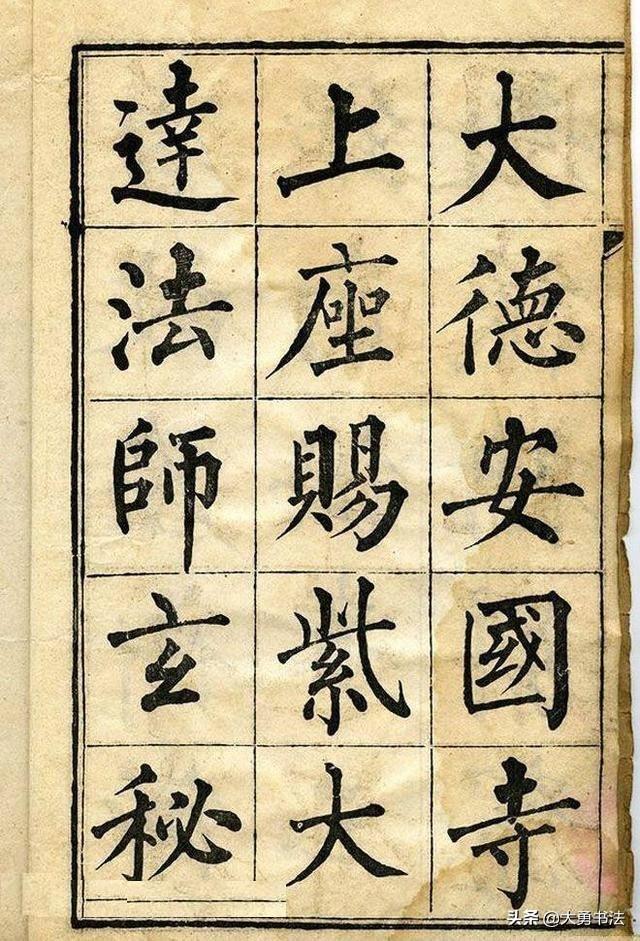 大德安國寺
上座賜紫大
達法師玄秘
头条 @大勇书法